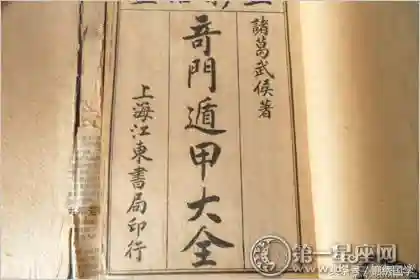 諸葛武侯著
奇門遁甲大全
上海江東書局印行
第一星座网